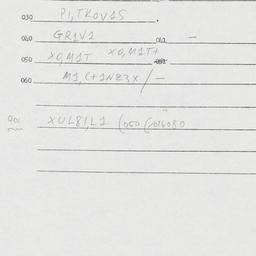 030 PI,TKOV1S.
040 GR1V1 042 —
050 XO,M1T XO,M1T+
060 M1,C+1NZ3X/—
XUL8I,L1 (050 (016080